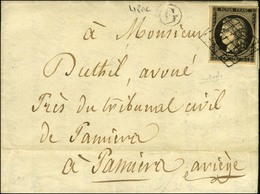 à Monsieur
Duthil, avoué
Près du tribunal civil
de Pamiers
à Pamiers, ariège